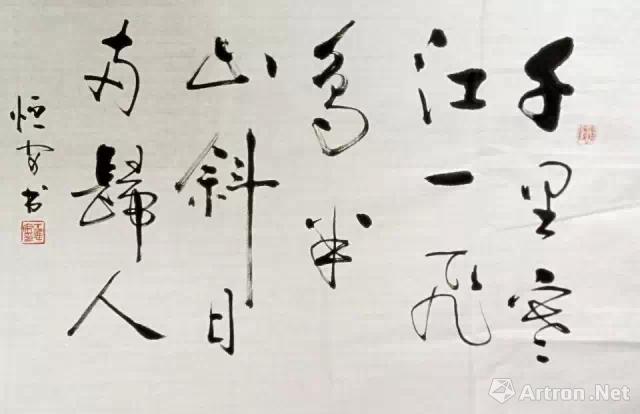 千里寒
江一飛
鳥半
山斜日
两歸人
恒安书
Artron.Net